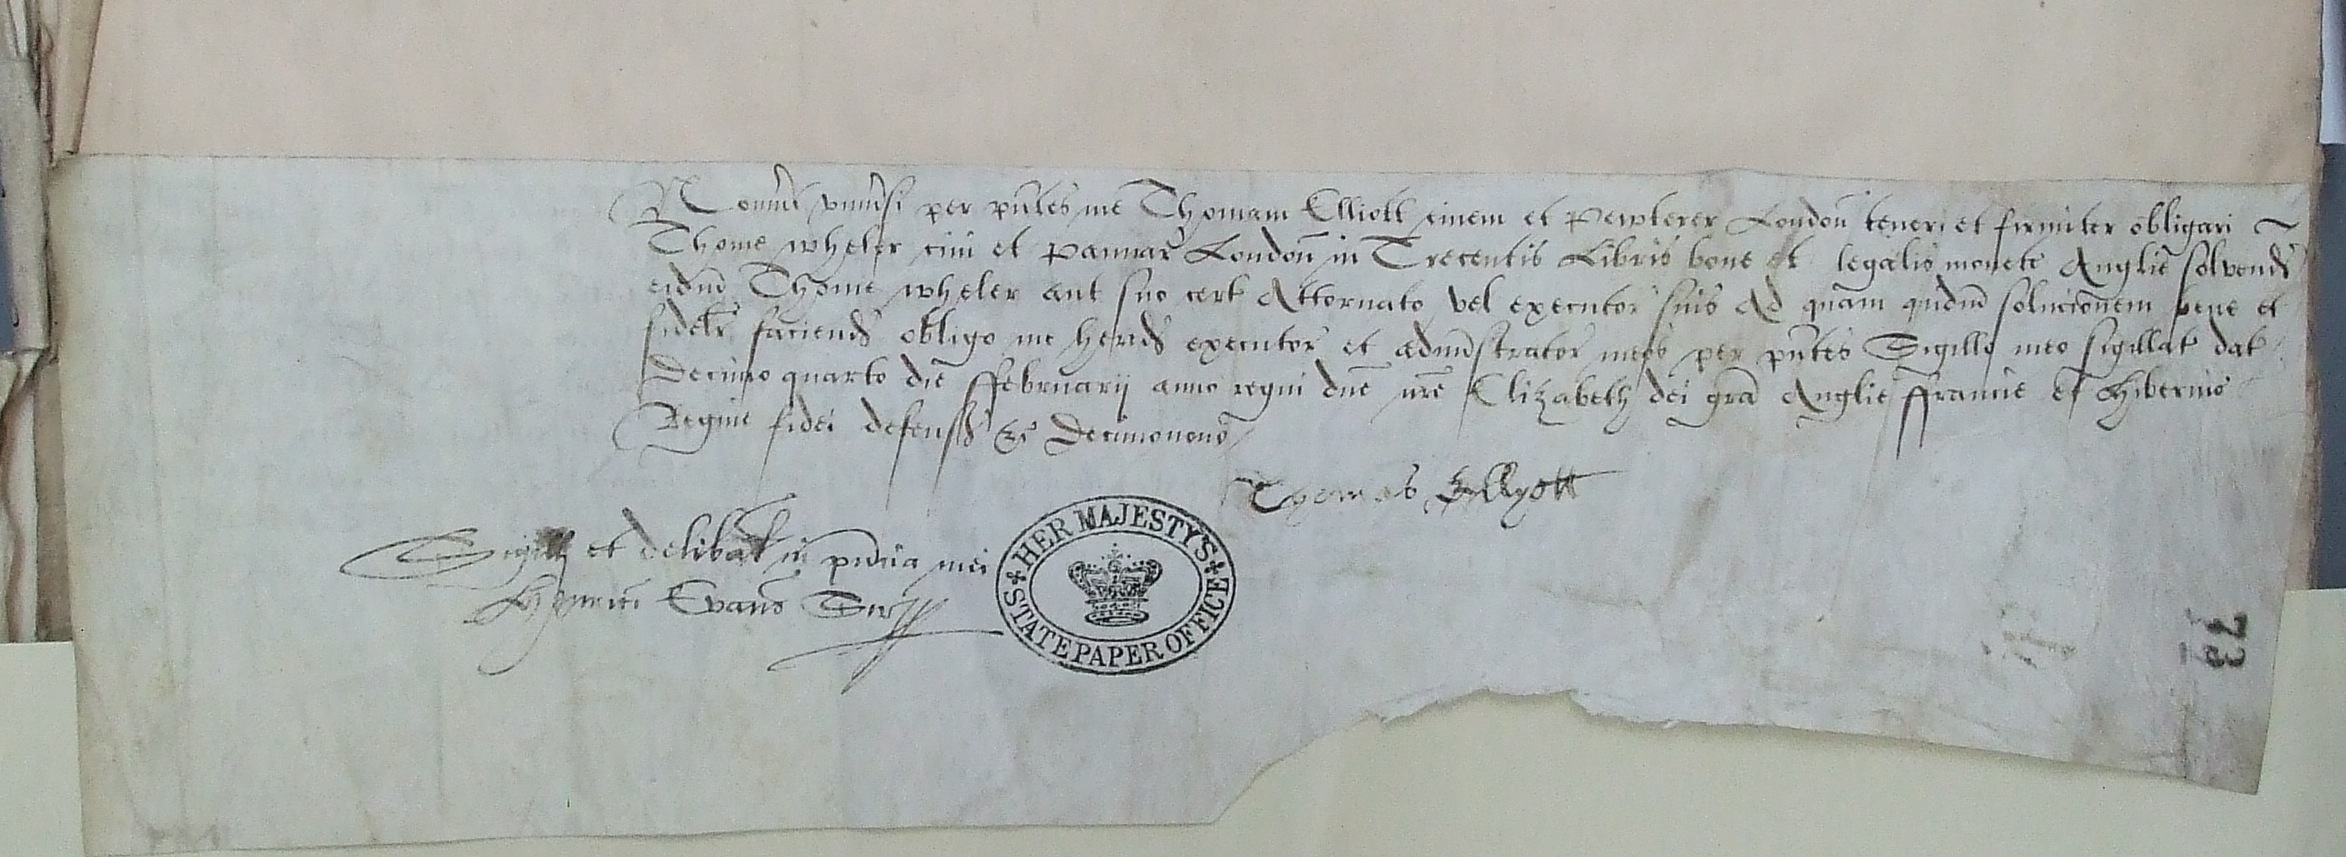 Novint univsi per pntes me Thomam Elliott civem et Pewterer London teneri et firmiter obligari
Thome Wheler civi et Pannar London in Trecentis Libris bone et legalis monete Anglie solvend
eidm Thome Wheler aut suo cert Attornato vel executor suis Ad quam quidm solucionem bene et
fidelr faciend obligo me hered executor et administrator meos per pntes Sigillo meo sigillat dat
Decimo quarto die ffebruarij anno regni dne nre Elizabeth dei gra Anglie ffrancie et Hibernie
Regine fidei defens &c Decimonono
Thomas Ellyott
Sigill et delibat in pncia mei
Henrici Evans Scr
HER MAJESTY'S
STATE PAPER OFFICE
73